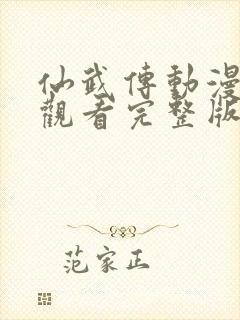 仙武傳動漫
觀看完整版
范家正